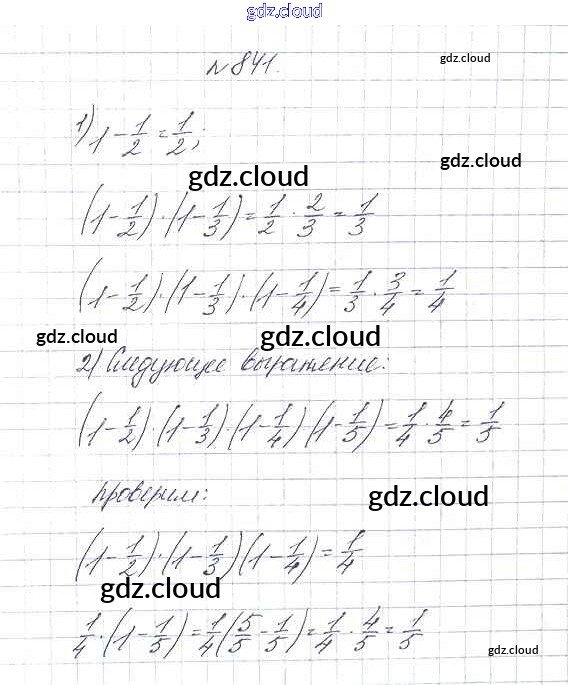 gdz.cloud
№ 841.
gdz.cloud
1) 1 - 1/2 = 1/2;
gdz.cloud
gdz.cloud
(1 - 1/2) · (1 - 1/3) = 1/2 · 2/3 = 1/3
(1 - 1/2) · (1 - 1/3) · (1 - 1/4) = 1/3 · 3/4 = 1/4
gdz.cloud
gdz.cloud
2) Следующее выражение:
(1 - 1/2) · (1 - 1/3) · (1 - 1/4) (1 - 1/5) = 1/4 · 4/5 = 1/5
Проверим:
gdz.cloud
(1 - 1/2) · (1 - 1/3) (1 - 1/4) = 1/4
gdz.cloud
1/4 · (1 - 1/5) = 1/4 (5/5 - 1/5) = 1/4 · 4/5 = 1/5
gdz.cloud